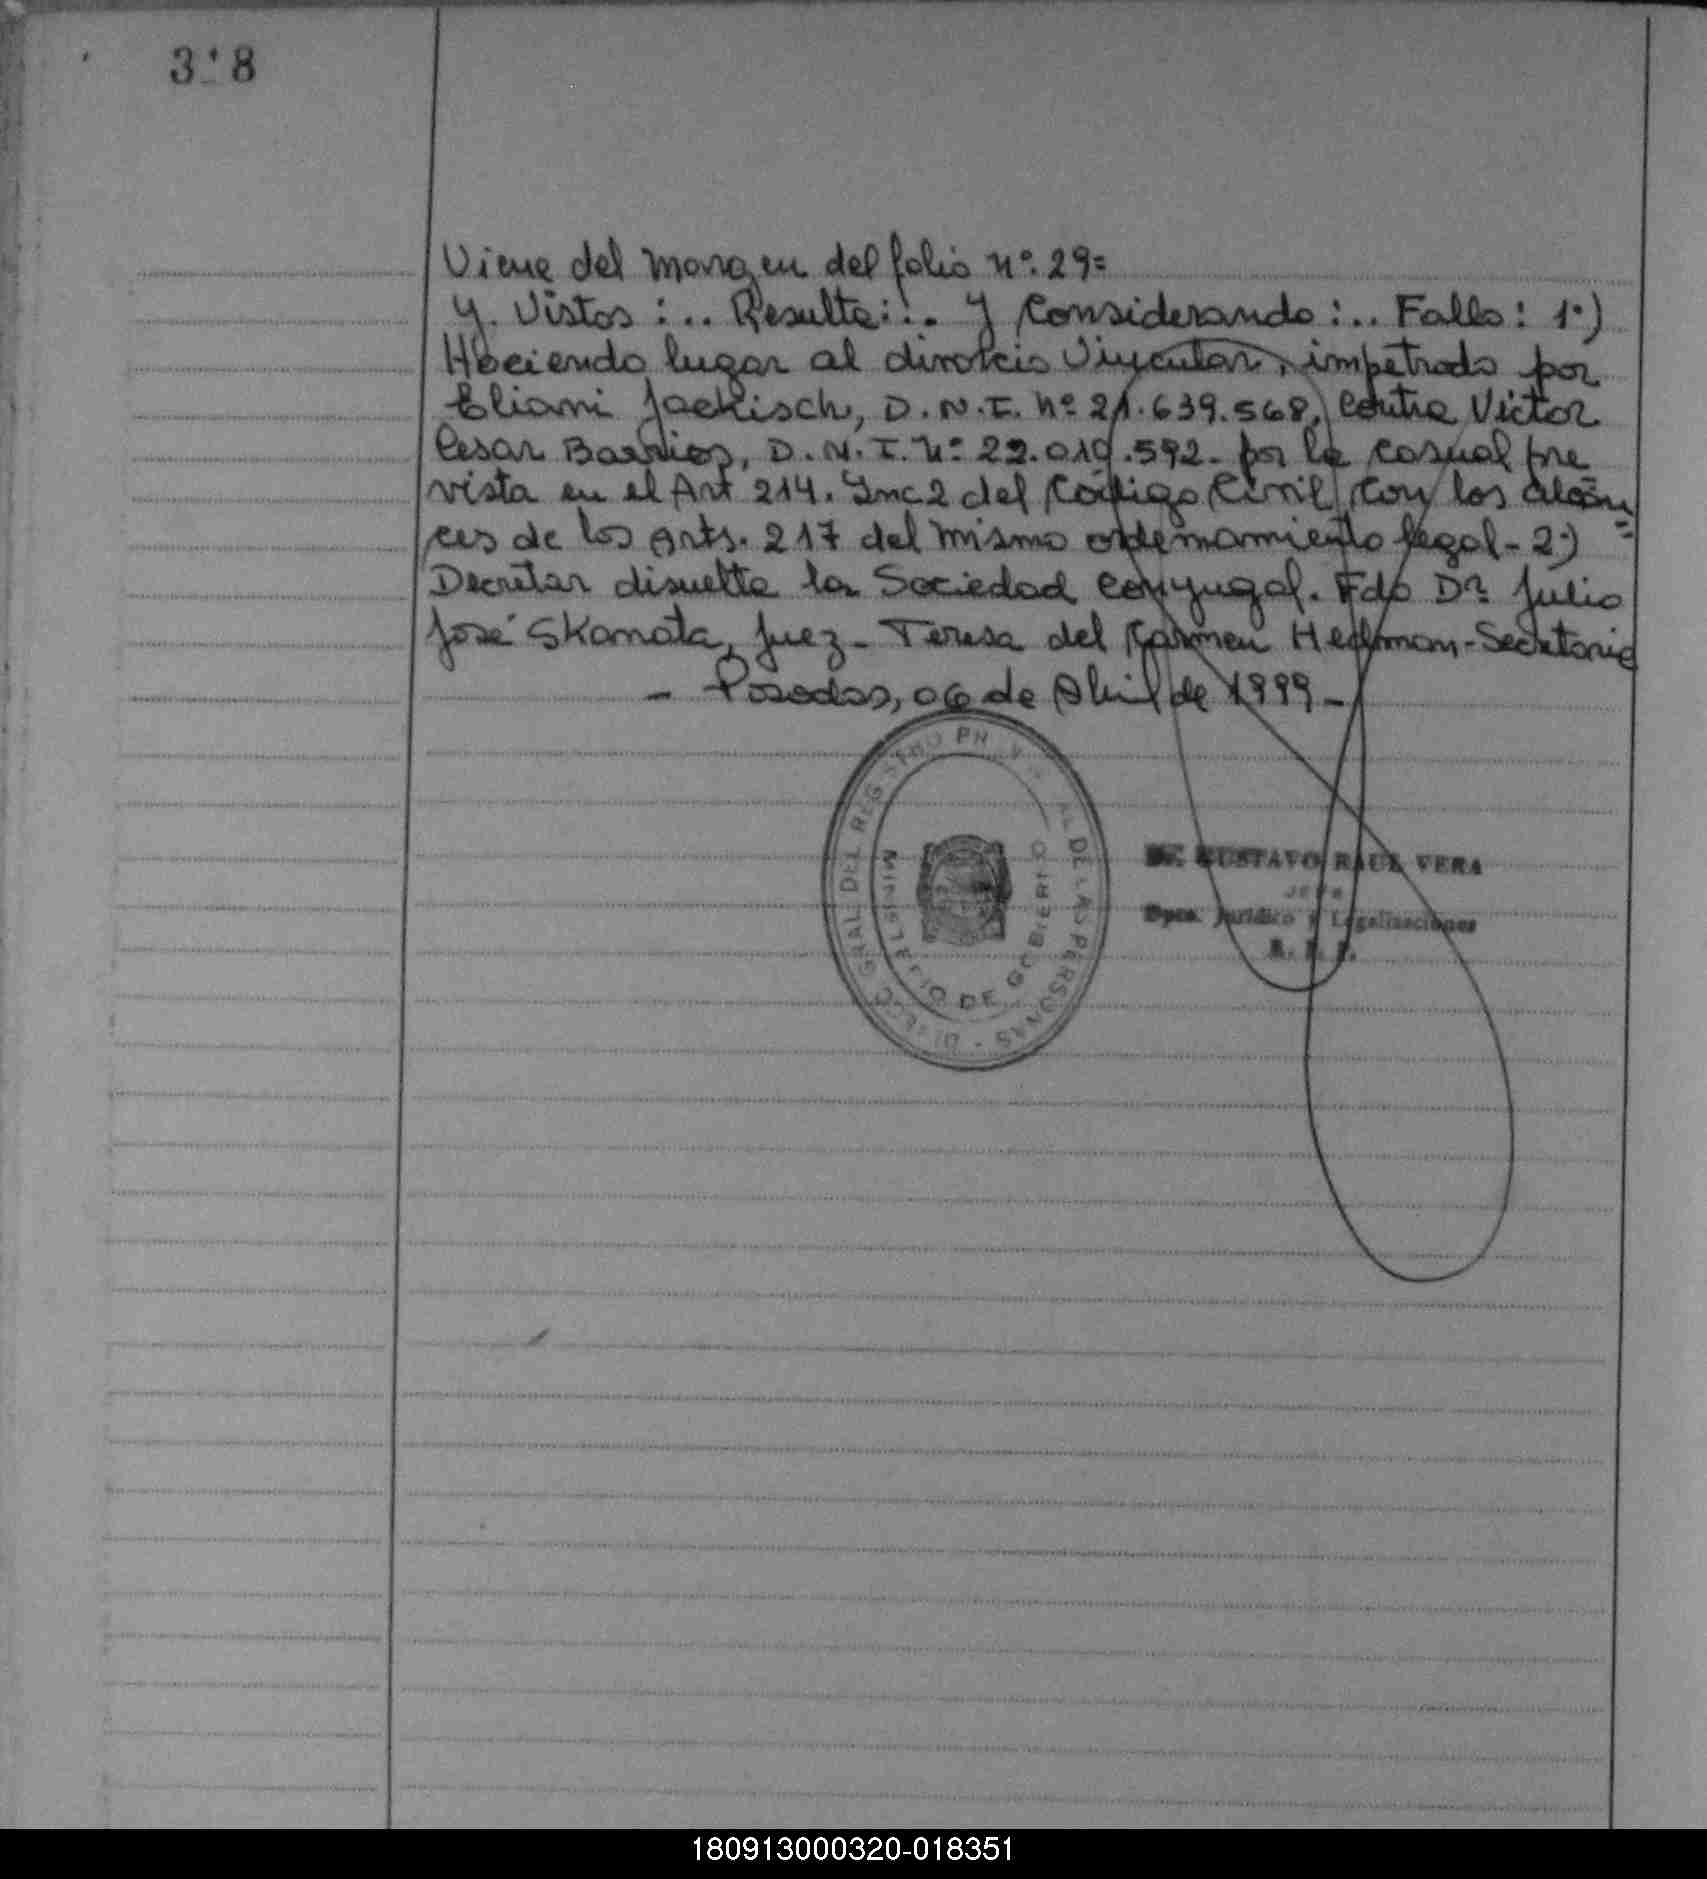 318
Viene del Margen del folio nº. 29=
Y. Vistos:.. Resulta:.. Y Considerando:.. Fallo: 1º)
Haciendo lugar al divorcio Vincular, impetrado por
Eliani Jackisch, D.N.I. nº 21.639.568, contra Victor
Cesar Barrios, D.N.I. Nº 22.019.592. por la casual pre
vista en el Art 214. Inc 2 del Código Civil con los alcan=
ces de los Arts. 217 del mismo ordenamiento legal - 2º)
Decretar disuelta la Sociedad conyugal. Fdo Dr. Julio
José Skanata, Juez - Teresa del Carmen Hedman - Secretaria
- Posadas, 06 de Abril de 1999 -
DIRECC GRAL DEL REGISTRO PROV AL DE LAS PERSONAS
MINISTERIO DE GOBIERNO
Dr. GUSTAVO RAUL VERA
JEFE
Dpto. Jurídico y Legalizaciones
R. P. P.
180913000320-018351